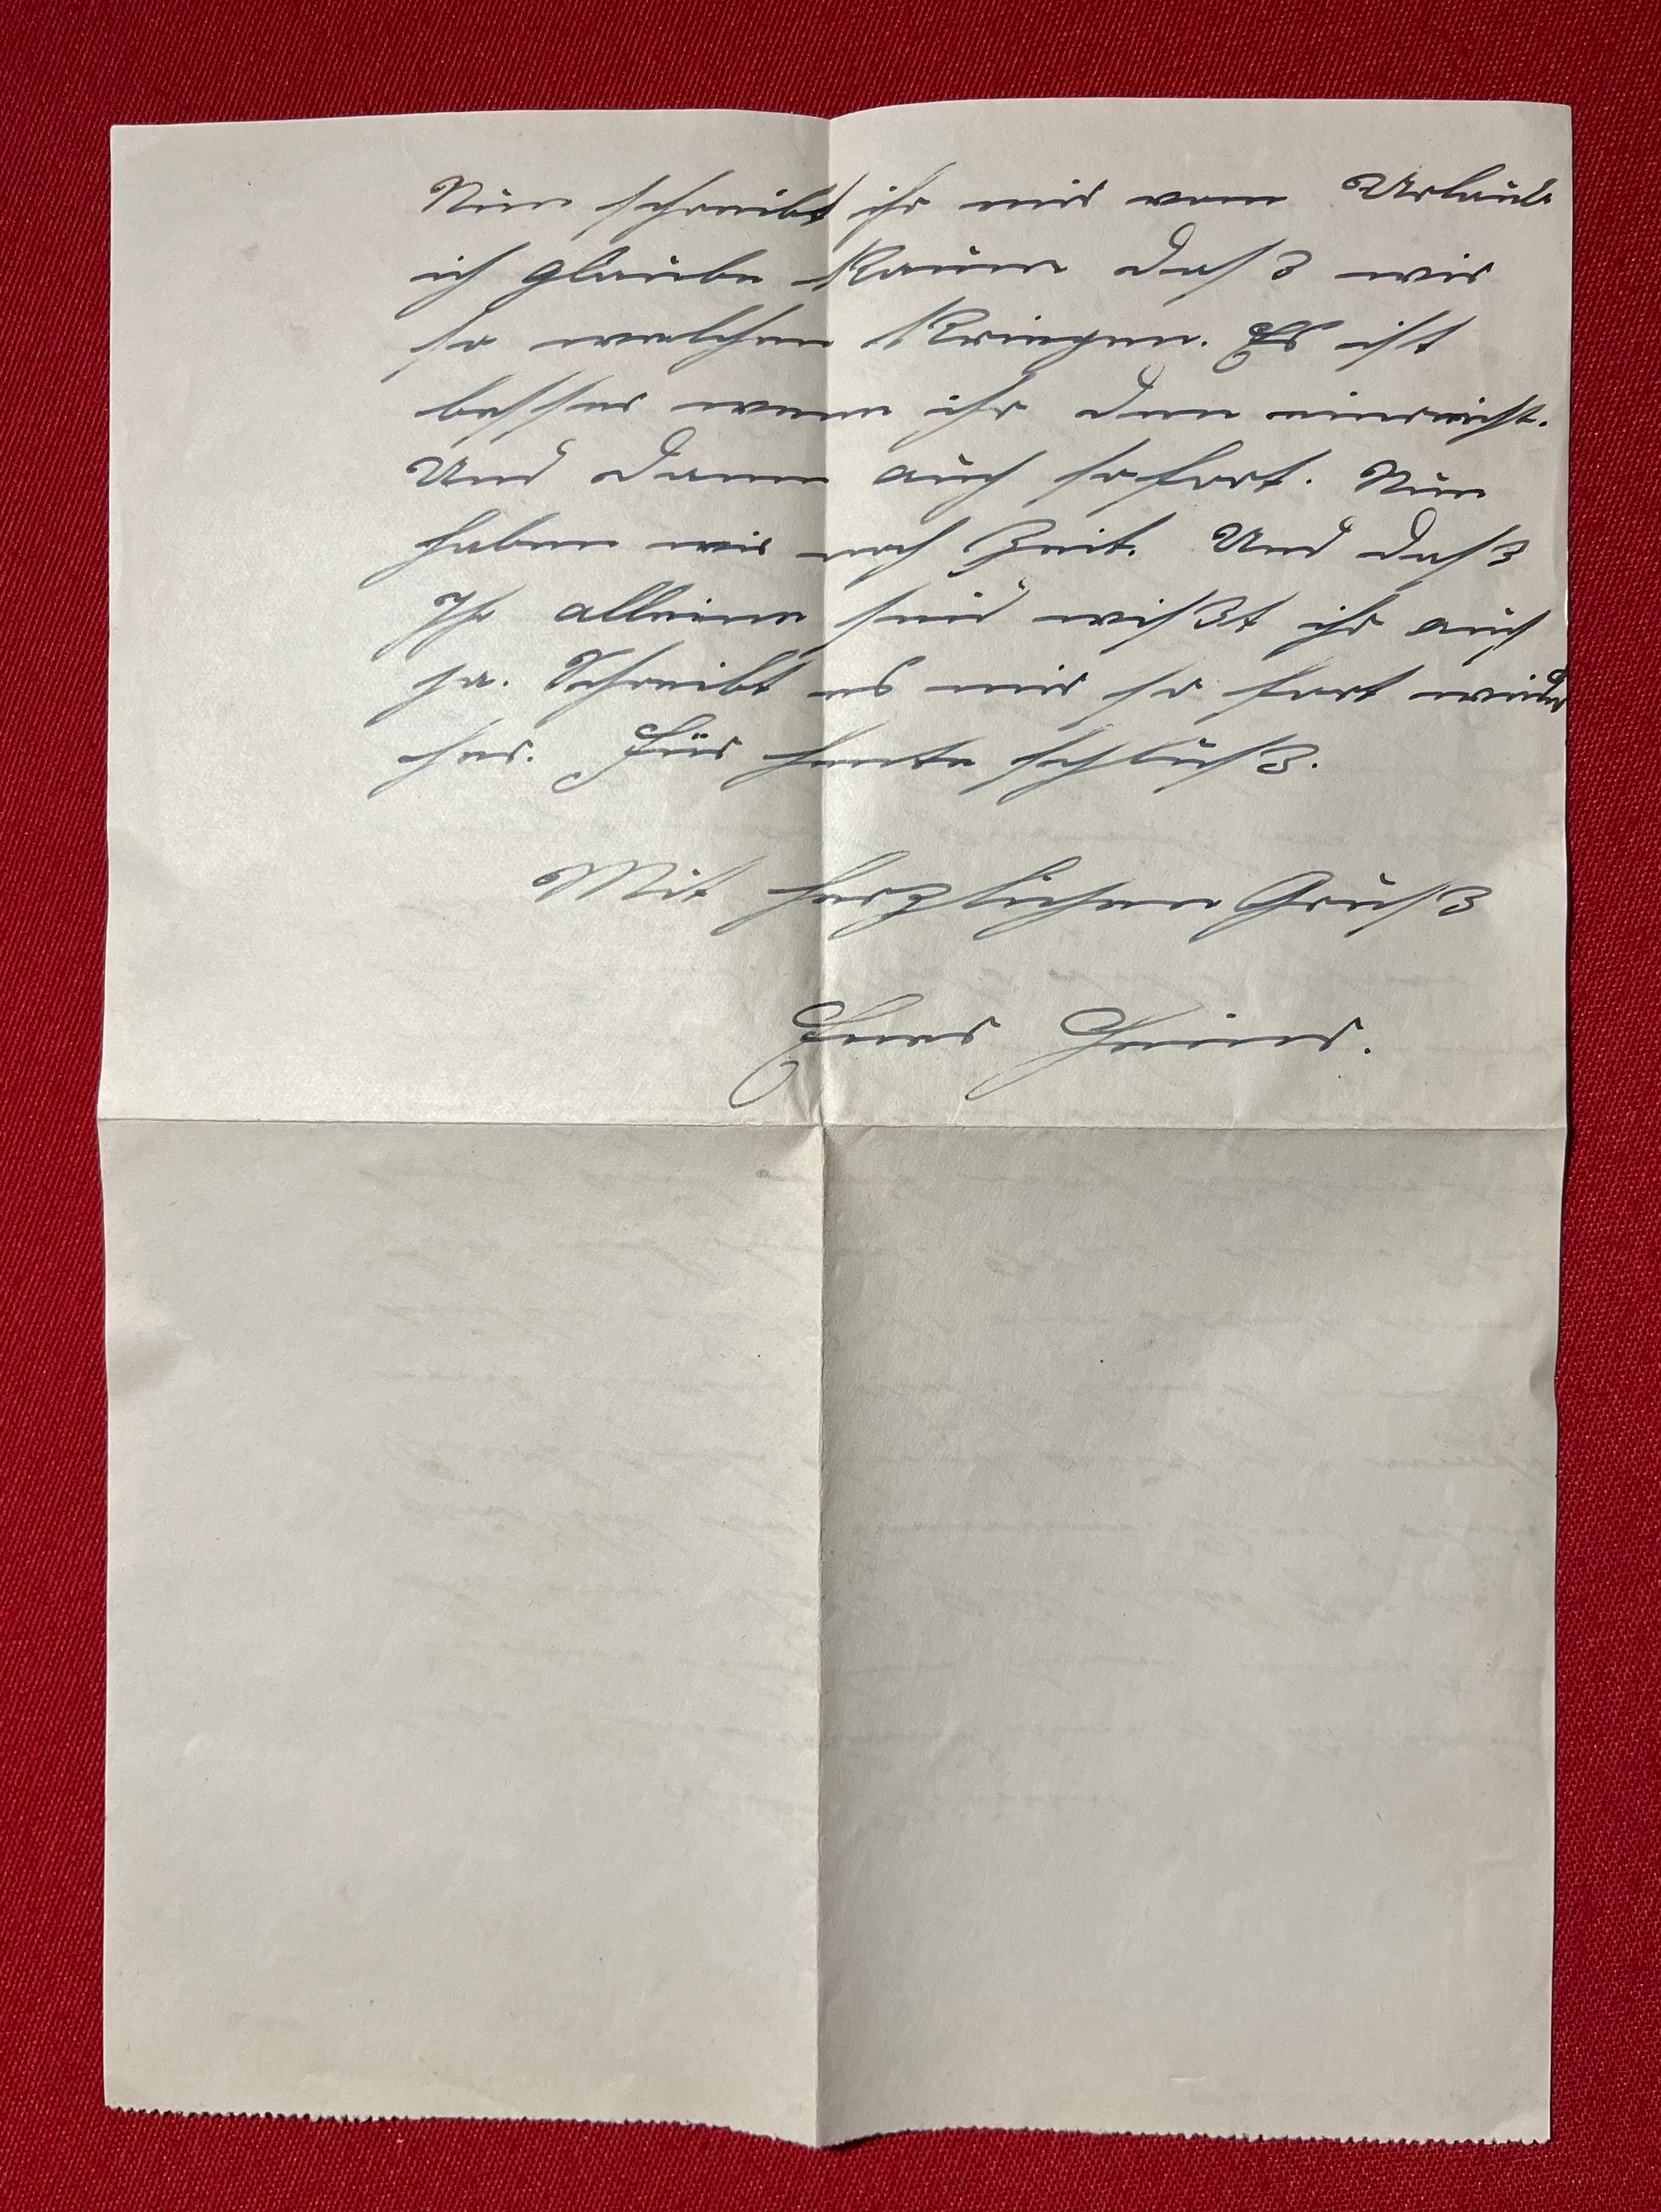 Nun schreibt ihr mir vom Urlaub
ich glaube kaum daß wir
so welchen Kriegen. Es ist
besser wenn ihr den einreicht.
Und dann auch sofort. Nun
haben wir noch Zeit. Und daß
Ihr alleine seid wißt ihr auch
ja. Schreibt es mir so fort wieder
her. Für heute schluß.
Mit herzlichen Gruß
Euer